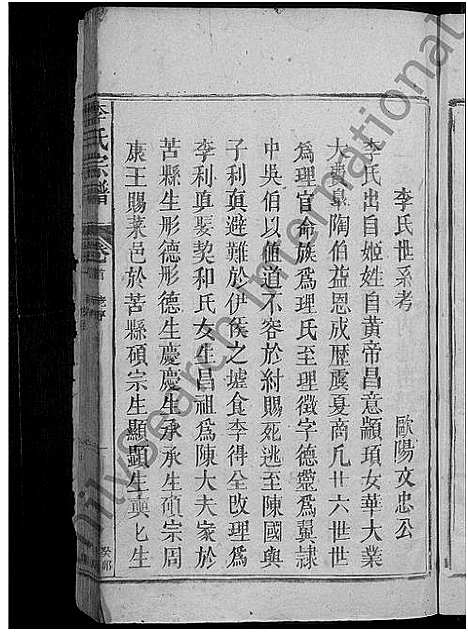 李氏世系考
歐陽文忠公
李氏出自姬姓自黃帝昌意顓頊女華大業
大費臯陶伯益恩成歷虞夏商凡廿六世世
爲理官命族爲理氏至理徵字德靈爲翼隷
中吳伯以値道不容於紂賜死逃至陳國與
子利真避難於伊侯之墟食李得全改理爲
李利真娶契和氏女生昌祖爲陳大夫家於
苦縣生形德形德生慶慶生承承生碩宗周
康王賜菜邑於苦縣碩宗生顯顯生藥乚生
李氏宗譜
卷首
familysearch international